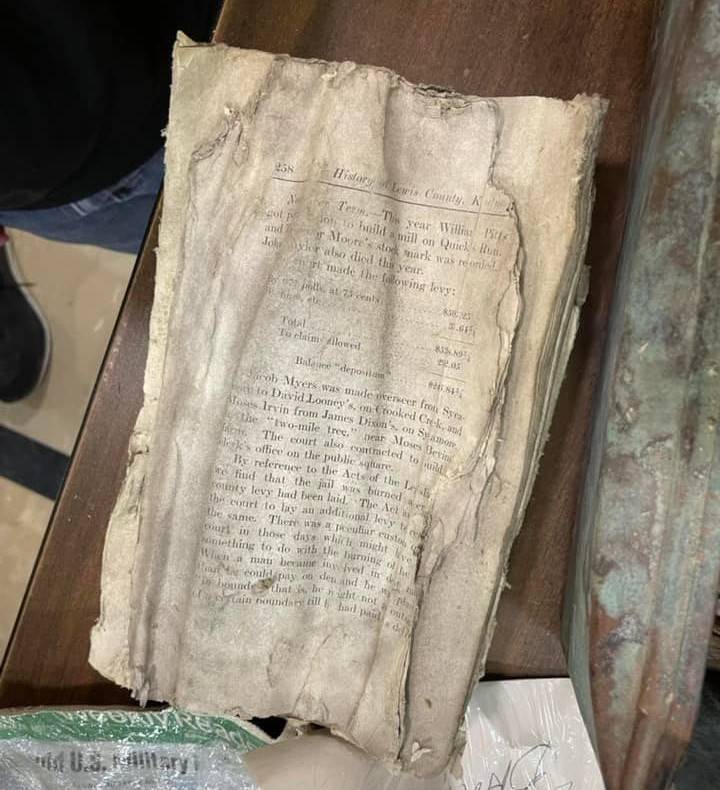 258 History of Lewis County, K
Term.—The year William Pitts
got to build a mill on Quick's Run.
and Moore's stock mark was recorded.
also died this year.
made the following levy:
polls, at 75 cents
etc
Total
To claims allowed
Balance "depositum"
Jacob Myers was made overseer from Syca-
to David Looney's, on Crooked Creek, and
Moses Irvin from James Dixon's, on Sycamore
the "two-mile tree," near Moses
The court also contracted to build
clerk's office on the public square.
By reference to the Acts of the
we find that the jail was burned
county levy had been laid. The Act
the court to lay an additional levy
the same. There was a peculiar custom
court in those days which might
something to do with the burning of
When a man became involved in
than he could pay on demand he
in bounds, that is, he might not
a certain boundary till he had paid
old U.S. Military